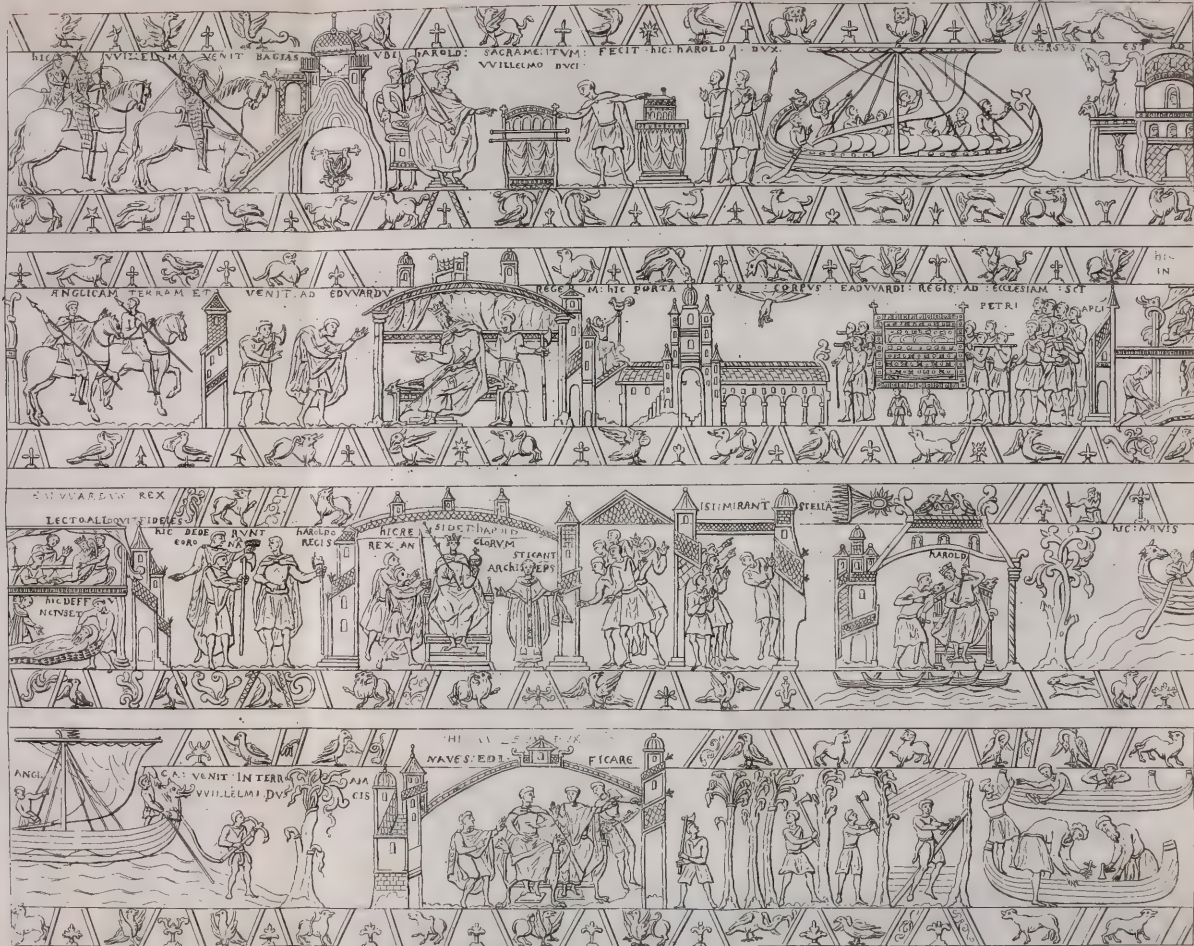 HIC WILLELM VENIT BAGIAS VBI hAROLD: SACRAMEITVM: FECIT · hIC: hAROLD DVX:
VVILLELMO DVCI ·
REVERSVS EST AD
ANGLICAM TERRAM ET VENIT: AD EDVVARDV
REGEM: hIC PORTATVR: CORPVS: EADVVARDI: REGIS: AD: ECCLESIAM: SCI
PETRI APLI
hIC
IN
REX
LECTO: ALLOQVIT: FIDELES
hIC DEFF
NCTVSET
hIC DEDERVNT HAROLDO
CORO REGIS
hIC RESIDET: HAROLD
REX ANGLORVM
STIGANT
ARChIEPS
ISTI MIRANT STELLA
HAROLD
hIC: NAVIS
ANGLICA: VENIT · IN TERRAM
VVILLELMI: DVCIS
NAVES: EDIFICARE